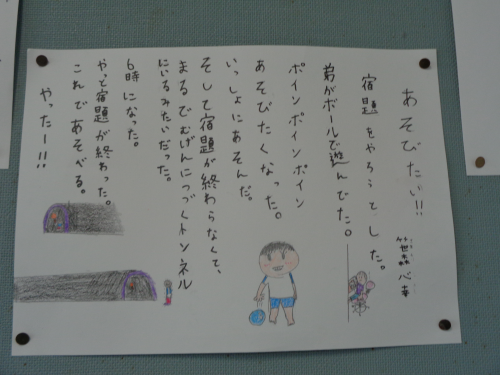 あそびたい!!
笹森心幸
宿題をやろうとした。
弟がボールで遊んでた。
ポインポインポイン
あそびたくなった。
いっしょにあそんだ。
そして宿題が終わらなくて、
まるでむげんにつづくトンネル
にいるみたいだった。
6時になった。
やっと宿題が終わった。
これであそべる。
やったー!!